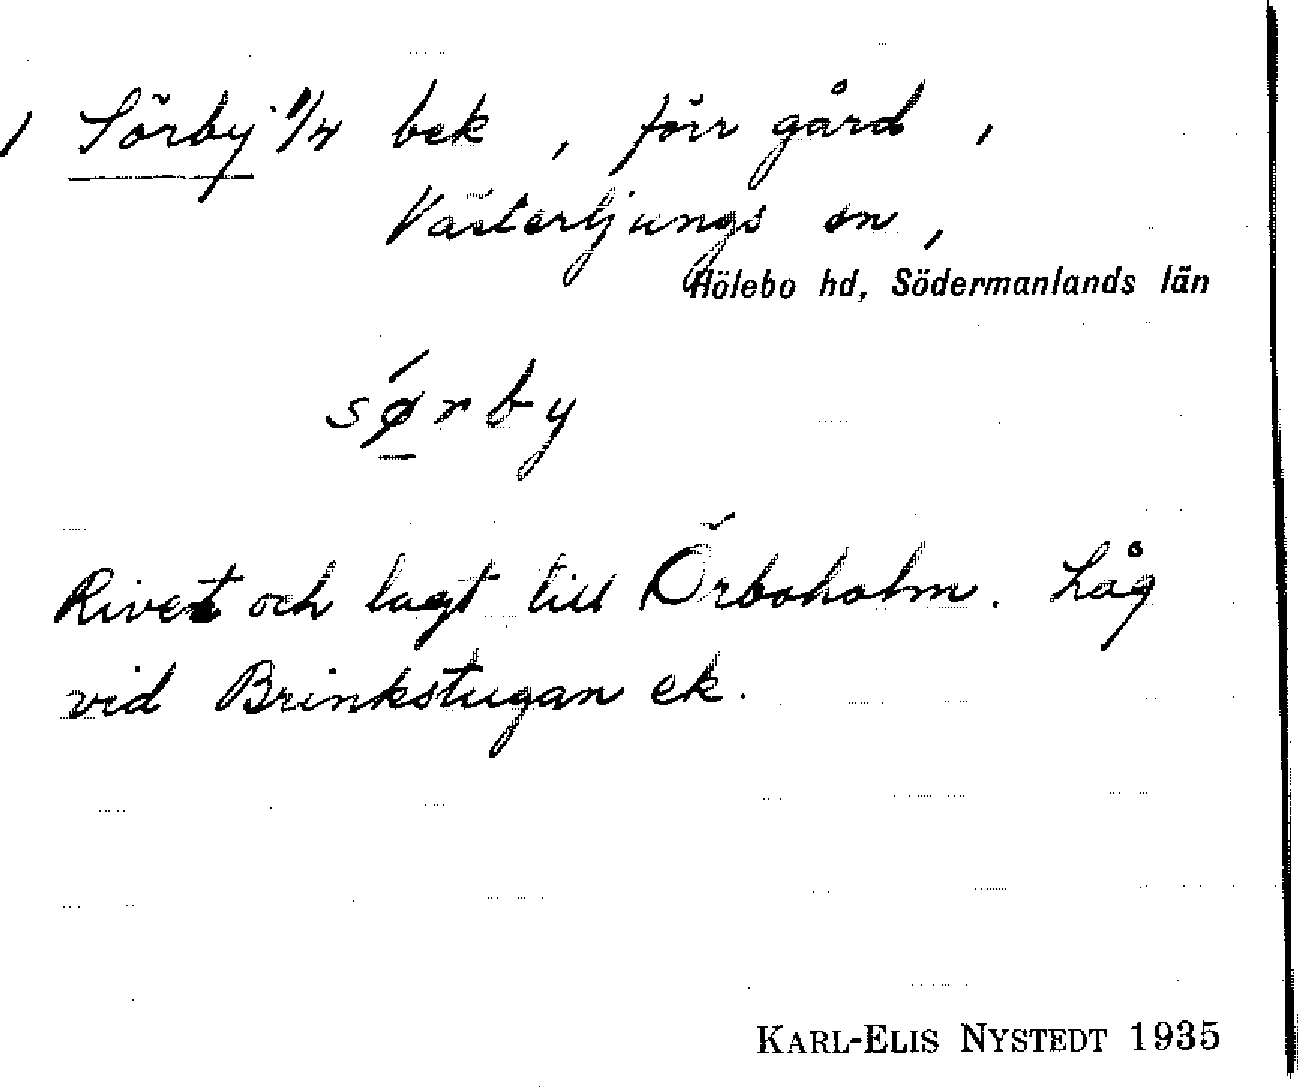 Sörby 1/4 bek, förr gård,
Västerljungs sn,
Hölebo hd, Södermanlands län
sǿrby
Rivet och lagt till Örboholm. Låg
vid Brinkstugan ek.
KARL-ELIS NYSTEDT 1935